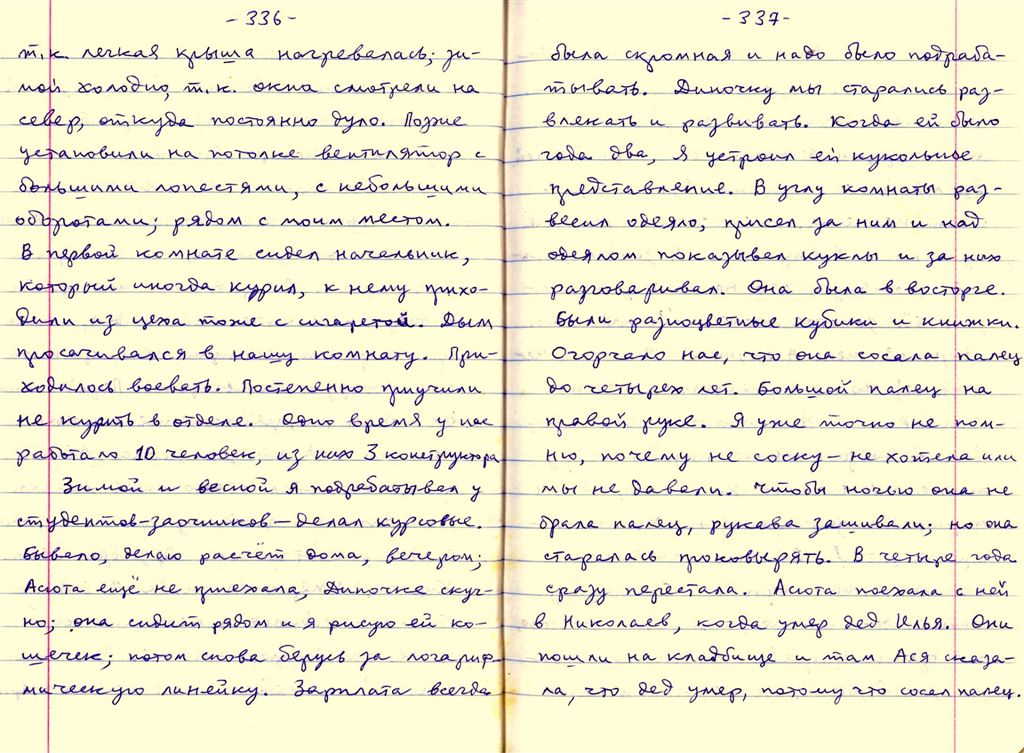 -336-
т.к. легкая крыша нагревалась; зи-
мой холодно, т.к. окна смотрели на
север, откуда постоянно дуло. Позже
установили на потолке вентилятор с
большими лопестями, с небольшими
оборотами; рядом с моим местом.
В первой комнате сидел начальник,
который иногда курил, к нему прихо-
дили из цеха тоже с сигаретой. Дым
просачивался в нашу комнату. При-
ходилось воевать. Постепенно приучили
не курить в отделе. Одно время у нас
работало 10 человек, из них 3 конструктора
Зимой и весной я подрабатывал у
студентов-заочников — делал курсовые.
Бывало, делаю расчёт дома, вечером;
Асюта ещё не приехала, Диночке скуч-
но; она сидит рядом и я рисую ей ко-
шечек; потом снова берусь за логариф-
мическую линейку. Зарплата всегда
-337-
была скромная и надо было подраба-
тывать. Диночку мы старались раз-
влекать и развивать. Когда ей было
года два, я устроил ей кукольное
представление. В углу комнаты раз-
весил одеяло, присел за ним и над
одеялом показывал куклы и за них
разговаривал. Она была в восторге.
Были разноцветные кубики и книжки.
Огорчало нас, что она сосала палец
до четырех лет. Большой палец на
правой руке. Я уже точно не пом-
ню, почему не соску — не хотела или
мы не давали. Чтобы ночью она не
брала палец, рукава зашивали; но она
старалась проковырять. В четыре года
сразу перестала. Асюта поехала с ней
в Николаев, когда умер дед Илья. Они
пошли на кладбище и там Ася сказа-
ла, что дед умер, потому что сосал палец.